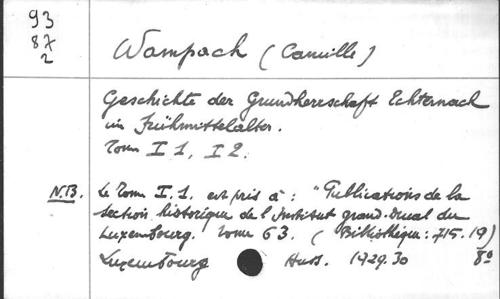 93
87
2
Wampach (Camille)
Geschichte der Grundherrschaft Echternach
im Frühmittelalter.
Tome I 1, I 2.
N.B. Le Tome I.1. est pris à : "Publications de la
Section historique de l'Institut grand-ducal du
Luxembourg. Tome 63. (Bibliothèque : 715.19)
Luxembourg 1929.30 8°